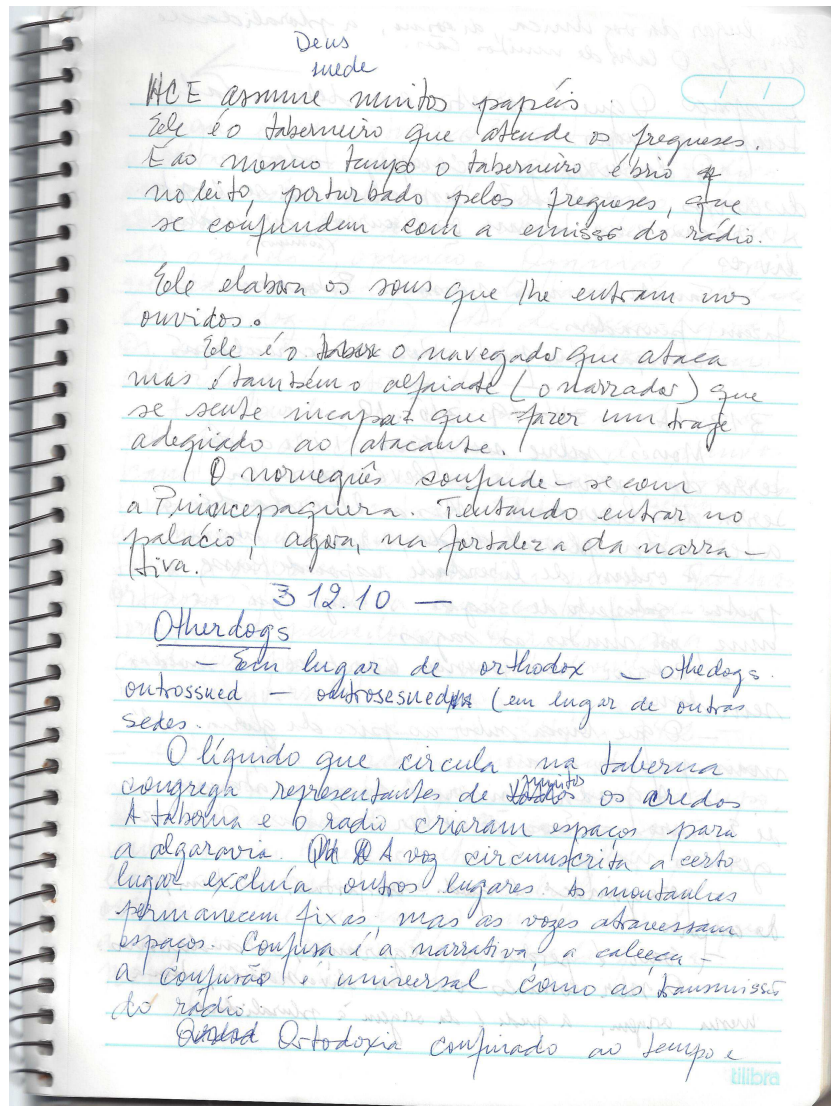 Deus
suede
HCE assume muitos papéis.
Ele é o taberneiro que atende os fregueses.
E ao mesmo tempo o taberneiro ébrio
no leito, perturbado pelos fregueses, que
se confundem com a emissão do rádio.
Ele elabora os sons que lhe entram nos
ouvidos.
Ele é o taber o navegador que ataca
mas é também o alfaiate (o narrador) que
se sente incapaz que fazer um traje
adequado ao atacante.
O norueguês confunde-se com
a Tentando entrar no
palácio, agora, na fortaleza da narra-
tiva.
312.10 —
Otherdogs
— Em lugar de orthodox — othedogs.
outrossued — outrosesued (em lugar de outras
sedes.
O líquido que circula na taberna
congrega representantes de muitos os credos
A taberna e o radio criaram espaços para
a algaravia. A voz circunscrita a certo
lugar excluía outros lugares. As montanhas
permanecem fixas, mas as vozes atravessam
espaços. Confusa é a narrativa, a cabeça -
a confusão é universal como as transmissõ
do rádio.
Ortodoxia confinado ao tempo e
tilibra